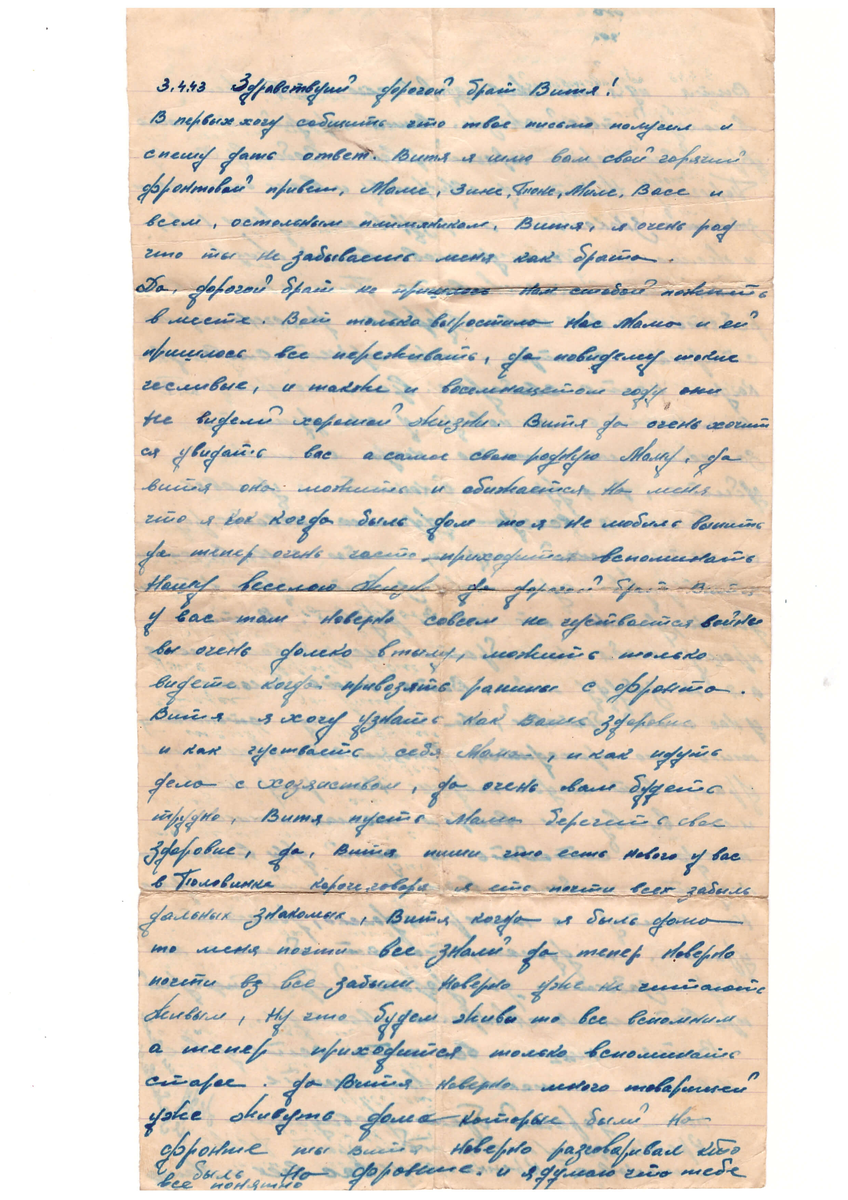 3.4.43 Здравствуй дорогой брат Витя!
В первых хочу собщить что твое письмо получил и
спешу дать ответ. Витя я шлю вам свой горячий
фронтовой привет, Маме, Зине, Тюне, Миле, Васе и
всем, остольным плимяником, Витя, я очень рад
что ты не забываеть меня как брата.
Да, дорогой брат не пришлось нам стобой пожить
в месте. Вот только выростила нас Мама и ей
пришлось все переживать, да повидему токие
чесливые, и также и восемнацетом году они
не видели хорошей жизни. Витя да очень хочит
ся увидать вас а самое свою родную Маму, да
витя она можить и обижается на меня
что я как когда быль дом то я не любиль выпить
да тепер очень часто приходится вспоминать
Нашу веселою жизнь да дорогой брат Витя
у вас там наверно совсем не чуствается войны
вы очень далеко втылу, можить только
видете когда привозять ранины с фронта.
Витя я хочу узнать как ваше здоровие
и как чуствоеть себя Мама, и как идуть
дела с хозяиством, да очень вам будеть
трудно, Витя пусть Мама беречить свое
здоровие, да, Витя пиши что есть нового у вас
в Тюловинке короче говоря я почти всех забыль
дальных знакомых, Витя когда я быль дома
то меня почти все знали да тепер наверно
почти все забыли наверно уже не читають
живым, Ну что будем живи то все вспомним
а тепер приходится только вспоминать
старое. да Витя наверно много товаришей
уже живуть дома которые были на
фронте ты витя наверно разговаривал кто
быль на фронте. и я думаю что тебе
все понятно